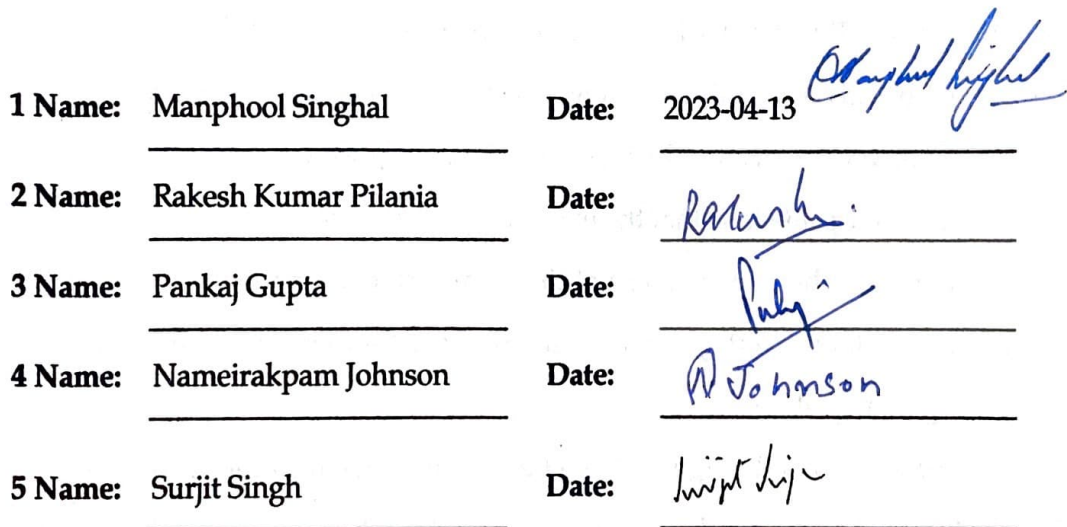 1 Name: Manphool Singhal Date: 2023-04-13 Manphool Singhal
2 Name: Rakesh Kumar Pilania Date:
3 Name: Pankaj Gupta Date:
4 Name: Nameirakpam Johnson Date: N Johnson
5 Name: Surjit Singh Date: